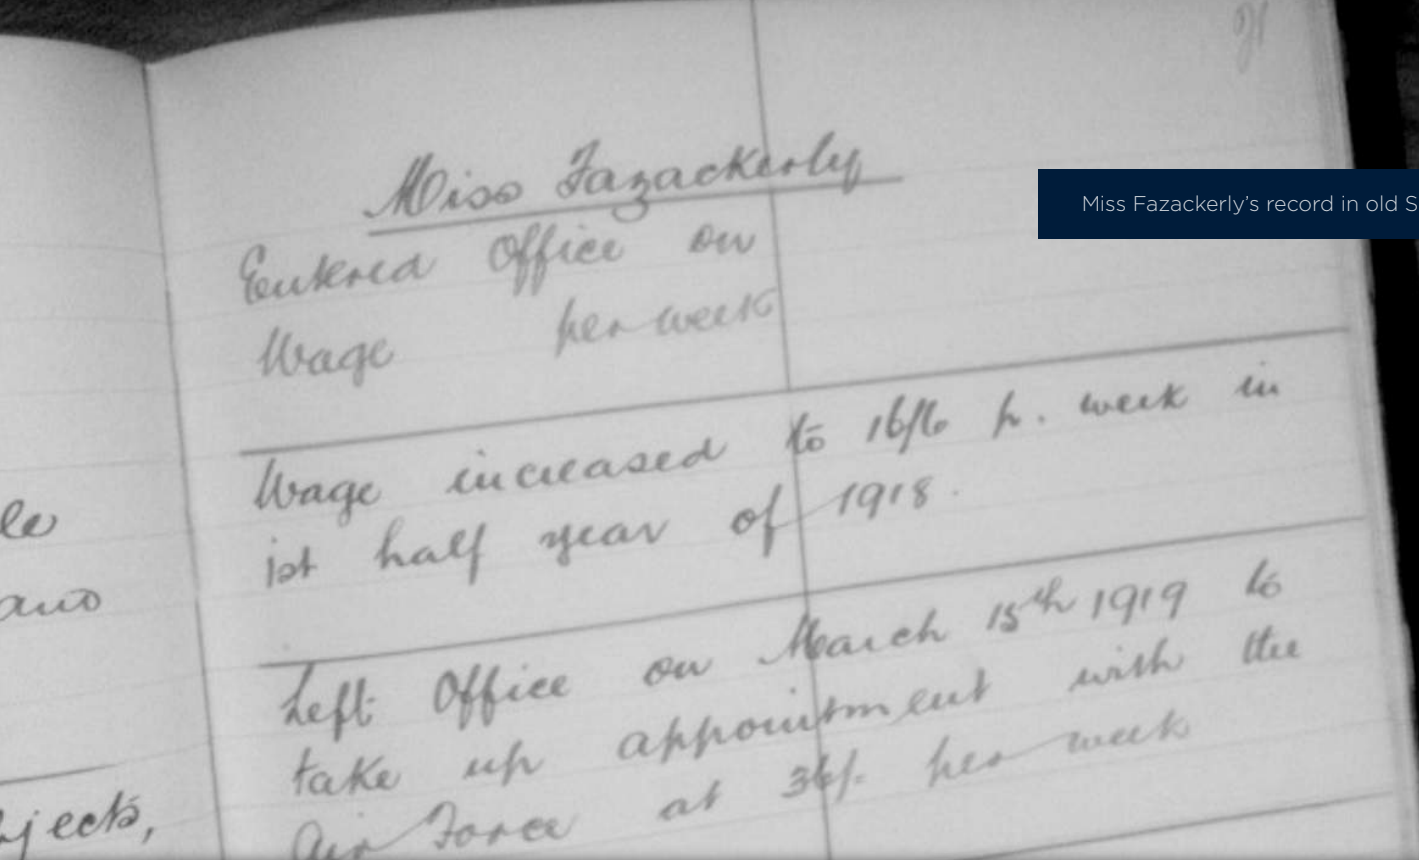 Miss Fazackerly
Miss Fazackerly's record in old S
Entered Office on
Wage per week
Wage increased to 16/6 p. week in
1st half year of 1918.
Left Office on March 15th 1919 to
take up appointment with the
Air Force at 36/- per week
le
and
jects,